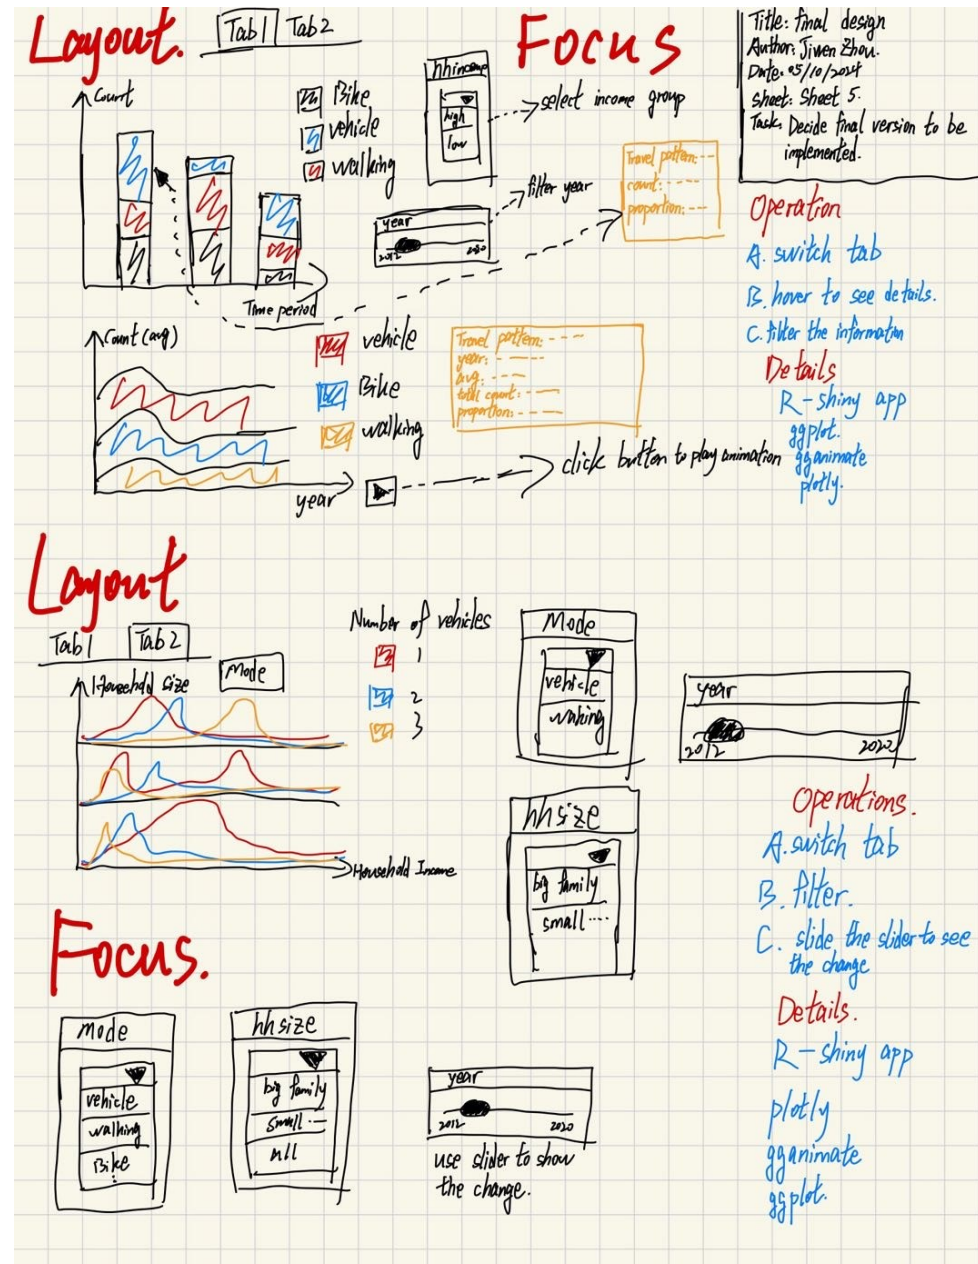 Layout.
Tab1 Tab2
Focus
Title: final design
Author: Jiwen Zhou.
Date: 05/10/2024
Sheet: Sheet 5.
Task: Decide final version to be
implemented.
Count
Bike
vehicle
walking
Time period
hhincome
high
low
select income group
year
2012 2020
filter year
Travel pattern: ---
count: ----
proportion: ---
Operation
A. switch tab
B. hover to see details.
C. filter the information
Details
R-shiny app
ggplot.
gganimate
plotly.
Count (avg)
year
vehicle
Bike
walking
Travel pattern: ---
year: ----
avg: ---
total count: ----
proportion: ----
click button to play animation
Layout
Tab1 Tab2
Mode
Household size
Household Income
Number of vehicles
1
2
3
Mode
vehicle
waking
year
2012 2020
hhsize
big family
small ....
Operations.
A. switch tab
B. filter.
C. slide the slider to see
the change
Details.
R-shiny app
plotly
gganimate
ggplot.
Focus.
mode
vehicle
walking
Bike
hhsize
big family
small ...
All
year
2012 2020
use slider to show
the change.